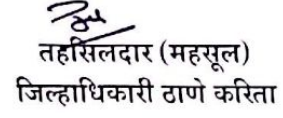 तहसिलदार (महसूल)
जिल्हाधिकारी ठाणे करिता